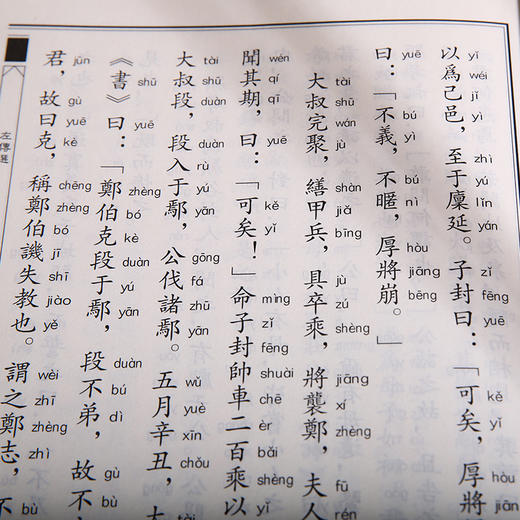 以爲己邑，至于廩延。子封曰：「可矣，厚將
yǐ wéi jǐ yì zhì yú lǐn yán zǐ fēng yuē kě yǐ hòu jiāng
曰：「不義，不暱，厚將崩。」
yuē bú yì bú nì hòu jiāng bēng
大叔完聚，繕甲兵，具卒乘，將襲鄭，夫人
tài shū wán jù shàn jiǎ bīng jù zú shèng jiāng xí zhèng fū rén
聞其期，曰：「可矣！」命子封帥車二百乘以
wén qí qī yuē kě yǐ mìng zǐ fēng shuài chē èr bǎi shèng yǐ
大叔段，段入于鄢，公伐諸鄢。五月辛丑，大
tài shū duàn duàn rù yú yān gōng fá zhū yān wǔ yuè xīn chǒu
《書》曰：「鄭伯克段于鄢，段不弟，故不
shū yuē zhèng bó kè duàn yú yān duàn bú dì gù bù
君，故曰克，稱鄭伯譏失教也。謂之鄭志，不
jūn gù yuē kè chēng zhèng bó jī shī jiào yě wèi zhī zhèng zhì bù
左傳選